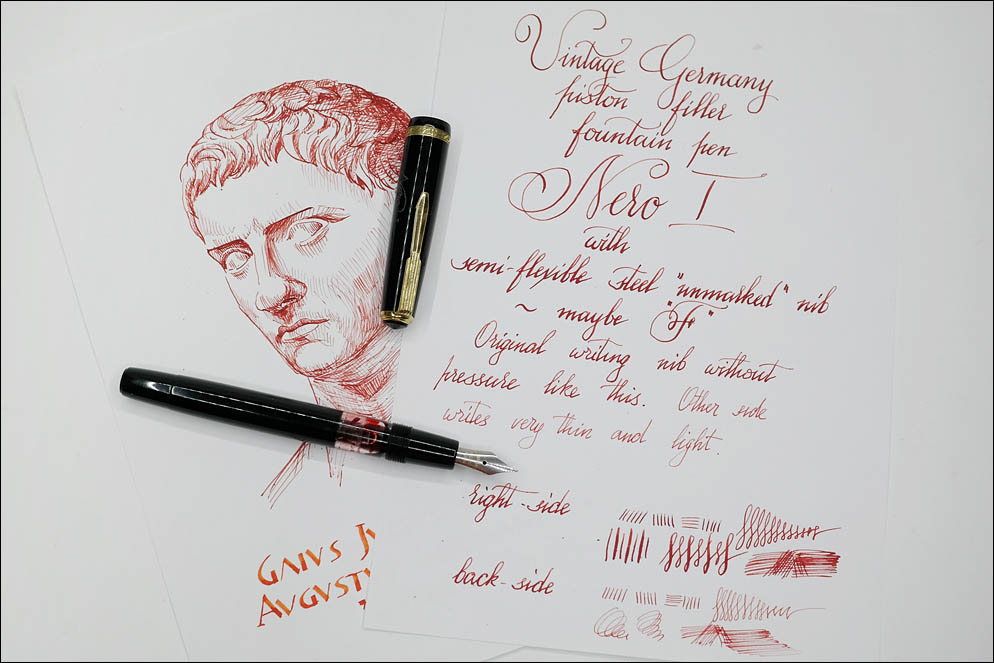 Vintage Germany
piston filler
fountain pen
Nero I
with
semi-flexible steel "unmarked" nib
~ maybe "F"
Original writing nib without
pressure like this. Other side
writes very thin and light.
right-side
back-side
GAIVS JV
AVGVSTV